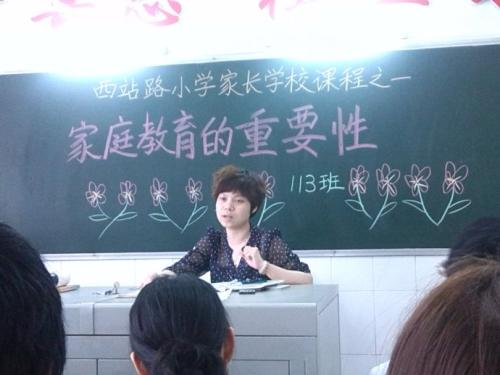 西站路小学家长学校课程之一
家庭教育的重要性
113班